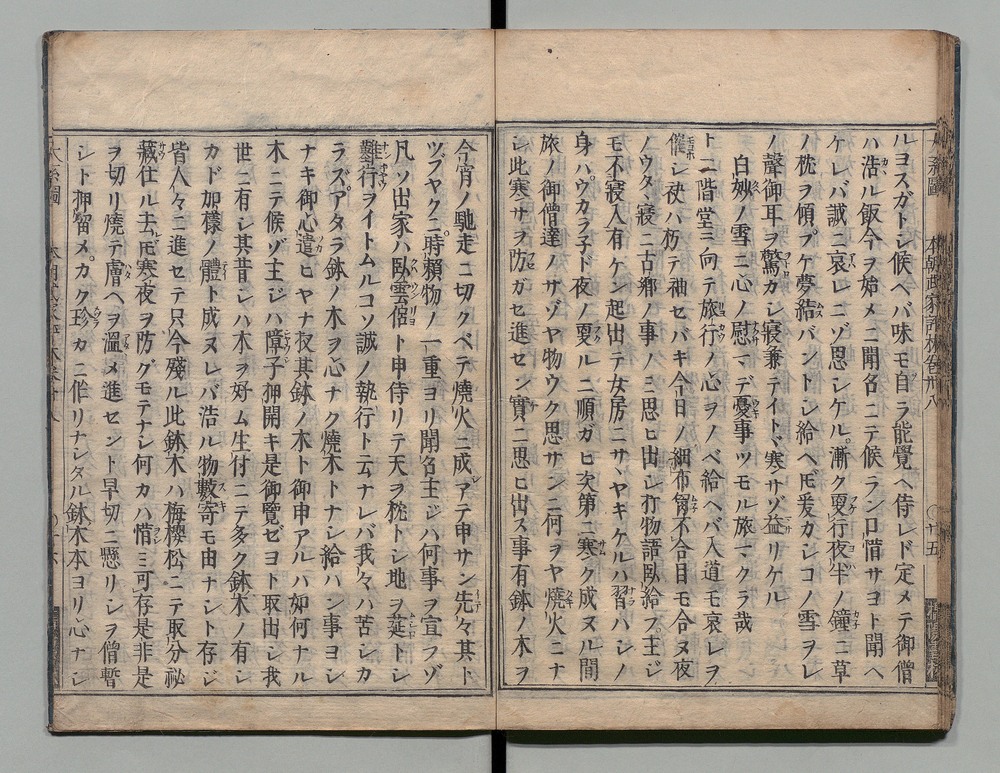 ルヨスガトシ候ヘバ味モ自ラ能覺ヘ侍レド定メテ御僧
ハ浩ル飯今ヲ始メニ聞名ニテ候ラン口惜サヨト聞ヘ
ケレバ誠ニ哀レニゾ思シケル漸ク夏行夜半ノ鐘ニ草
ノ枕ヲ傾ブケ夢結バントシ給ヘ𪜈爰カシコノ雪ヲヲレ
ノ聲御耳ヲ驚カシ寢兼テイトヾ寒サゾ益リケル
白妙ノ雪ニ心ノ慰マデ憂事ツモル旅マクラ哉
ト二階堂ニノ向テ旅行ノ心ヲノベ給ヘバ入道モ哀レヲ
催シ袂ハ朽テ袖セバキ今日ノ細布胷不合日モ合ヌ夜
ノウタヽ寢ニ古郷ノ事ノミ思ヒ出シ打物語臥給フ主シ
モ不寢入有ケン起出テ女房ニサヽヤキケルハ習ハシノ
身ハウカラ子ド夜ノ夏ルニ順ガヒ次第ニ寒ク成ヌル間
旅ノ御僧達ノサゾヤ物ウク思サンニ何ヲヤ燒火ニナ
シ此寒サヲ防ガセ進セン實ニ思ヒ出ス事有鉢ノ木ヲ
本朝武家評林卷卅八
十五
今宵ノ馳走ニ切クベテ燒火ニ成シアテ申サン先々其ト
ツブヤクニ時頼物ノ一重ヨリ聞名主シハ何事ヲ宣フゾ
凡ソ出家ハ臥雲侶ト申侍リテ天ヲ枕トシ地ヲ莚トシ
難行ヲイトムルコソ誠ノ執行ト云ナレバ我々ハ苦シカ
ラズアタラ鉢ノ木ヲ心ナク燒木トナシ給ハン事ヨシ
ナキ御心遣ヒヤナ扠其鉢ノ木ト御申アルハ如何ナル
木ニテ候ゾ主ジハ障子押開キ是御覽ゼヨト取出シ我
世ニ有シ其昔シハ木ヲ好ム生付ニテ多ク鉢木ノ有シ
カド加樣ノ體ト成ヌレバ浩ル物數寄モ由ナシト存ジ
皆人々ニ進セテ只今殘ル此鉢木ハ梅櫻松ニテ取分祕
藏仕ル去𪜈寒夜ヲ防グモテナシ何カハ惜ミ可存是非是
ヲ切リ燒テ膚ヘヲ温メ進セント早切ニ懸リシヲ僧暫
シト押留メカク珍カニ作リナシタル鉢木本ヨリ心ナシ